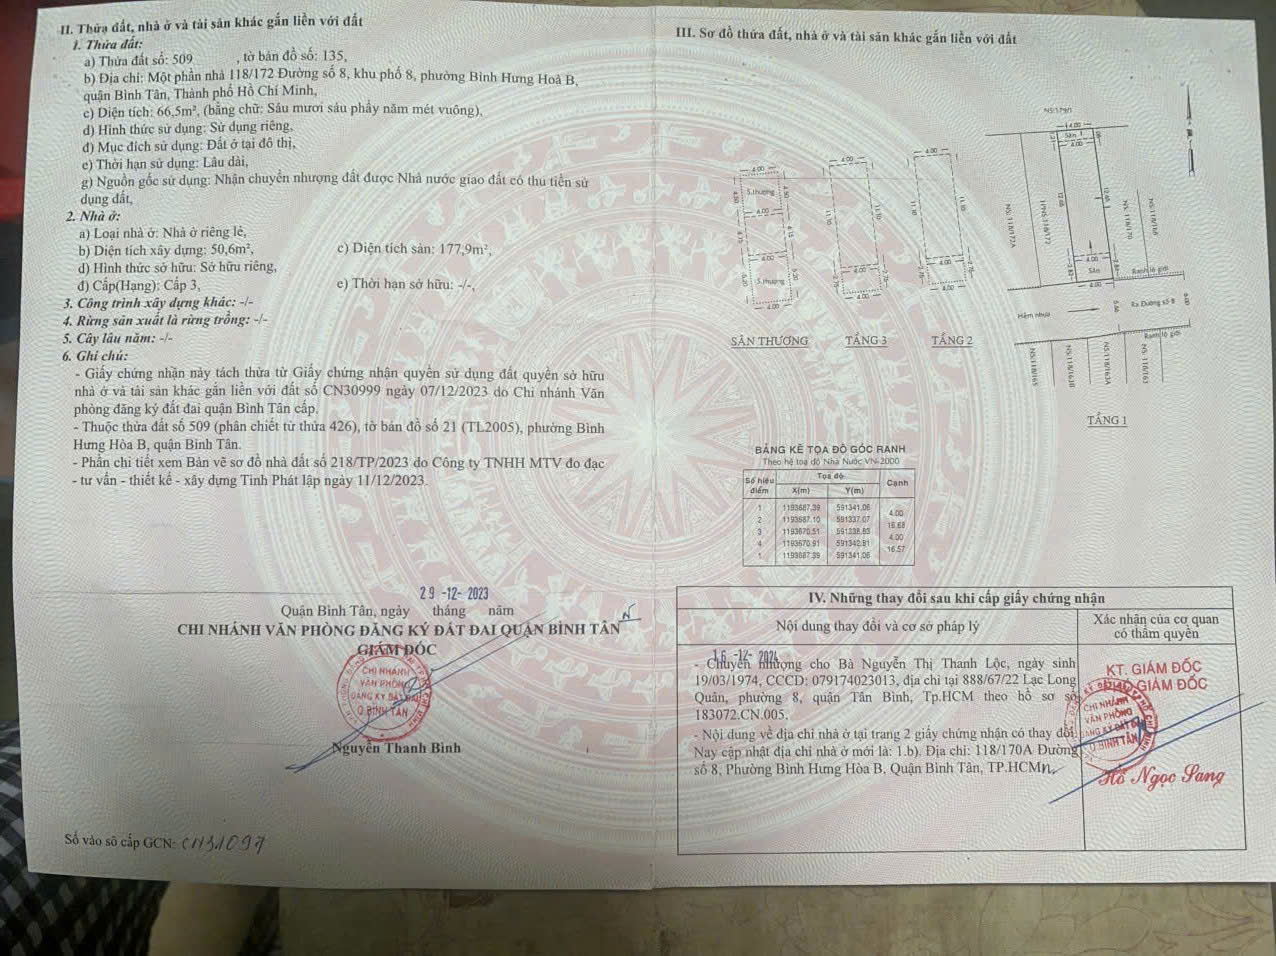 II. Thửa đất, nhà ở và tài sản khác gắn liền với đất
1. Thửa đất:
a) Thửa đất số: 509 , tờ bản đồ số: 135,
b) Địa chỉ: Một phần nhà 118/172 Đường số 8, khu phố 8, phường Bình Hưng Hoà B,
quận Bình Tân, Thành phố Hồ Chí Minh,
c) Diện tích: 66,5m², (bằng chữ: Sáu mươi sáu phẩy năm mét vuông),
d) Hình thức sử dụng: Sử dụng riêng,
đ) Mục đích sử dụng: Đất ở tại đô thị,
e) Thời hạn sử dụng: Lâu dài,
g) Nguồn gốc sử dụng: Nhận chuyển nhượng đất được Nhà nước giao đất có thu tiền sử
dụng đất,
2. Nhà ở:
a) Loại nhà ở: Nhà ở riêng lẻ,
b) Diện tích xây dựng: 50,6m², c) Diện tích sàn: 177,9m²,
d) Hình thức sở hữu: Sở hữu riêng,
đ) Cấp(Hạng): Cấp 3, e) Thời hạn sở hữu: -/-,
3. Công trình xây dựng khác: -/-
4. Rừng sản xuất là rừng trồng: -/-
5. Cây lâu năm: -/-
6. Ghi chú:
- Giấy chứng nhận này tách thửa từ Giấy chứng nhận quyền sử dụng đất quyền sở hữu
nhà ở và tài sản khác gắn liền với đất số CN30999 ngày 07/12/2023 do Chi nhánh Văn
phòng đăng ký đất đai quận Bình Tân cấp.
- Thuộc thửa đất số 509 (phân chiết từ thửa 426), tờ bản đồ số 21 (TL2005), phường Bình
Hưng Hòa B, quận Bình Tân.
- Phần chi tiết xem Bản vẽ sơ đồ nhà đất số 218/TP/2023 do Công ty TNHH MTV đo đạc
- tư vấn - thiết kế - xây dựng Tinh Phát lập ngày 11/12/2023.
29 -12- 2023
Quận Bình Tân, ngày tháng năm
CHI NHÁNH VĂN PHÒNG ĐĂNG KÝ ĐẤT ĐAI QUẬN BÌNH TÂN
GIÁM ĐỐC
CHI NHÁNH
VĂN PHÒNG
ĐĂNG KÝ ĐẤT ĐAI
Q.BÌNH TÂN
Nguyễn Thanh Bình
Số vào sổ cấp GCN: CN31097
III. Sơ đồ thửa đất, nhà ở và tài sản khác gắn liền với đất
NS:179/1
4.00
Sân
4.00
12.66
12.66
NS:118/172A
HPNS:118/172
NS: 118/170
NS:118/168
Sân
4.00
4.00
Ranh lộ giới
Hẻm nhựa
5.66
Ra Đường số 8
6.00
Ranh lộ giới
NS:118/165
NS:118/163B
NS:118/163A
NS:118/163
TẦNG 1
4.00
11.10
11.10
4.00
2.70
2.70
4.00
TẦNG 2
4.00
11.10
11.10
4.00
2.70
2.70
4.00
TẦNG 3
4.00
4.50
4.50
S.thượng
4.00
4.15
4.15
4.00
5.20
5.20
S.thượng
4.00
SÂN THƯỢNG
BẢNG KÊ TỌA ĐỘ GÓC RANH
Theo hệ toạ độ Nhà Nước VN-2000
Số hiệu điểm Tọa độ Cạnh
X(m) Y(m)
1 1193687.39 591341.06
4.00
2 1193687.10 591337.07
16.68
3 1193670.51 591338.83
4.00
4 1193670.91 591342.81
16.57
1 1193687.39 591341.06
IV. Những thay đổi sau khi cấp giấy chứng nhận
Nội dung thay đổi và cơ sở pháp lý
Xác nhận của cơ quan
có thẩm quyền
16 -12- 2024
- Chuyển nhượng cho Bà Nguyễn Thị Thanh Lộc, ngày sinh
19/03/1974, CCCD: 079174023013, địa chỉ tại 888/67/22 Lạc Long
Quân, phường 8, quận Tân Bình, Tp.HCM theo hồ sơ số
183072.CN.005.
- Nội dung về địa chỉ nhà ở tại trang 2 giấy chứng nhận có thay đổi.
Nay cập nhật địa chỉ nhà ở mới là: 1.b). Địa chỉ: 118/170A Đường
số 8, Phường Bình Hưng Hòa B, Quận Bình Tân, TP.HCM
KT. GIÁM ĐỐC
GIÁM ĐỐC
CHI NHÁNH
VĂN PHÒNG
ĐĂNG KÝ ĐẤT ĐAI
Q.BÌNH TÂN
Hồ Ngọc Sang